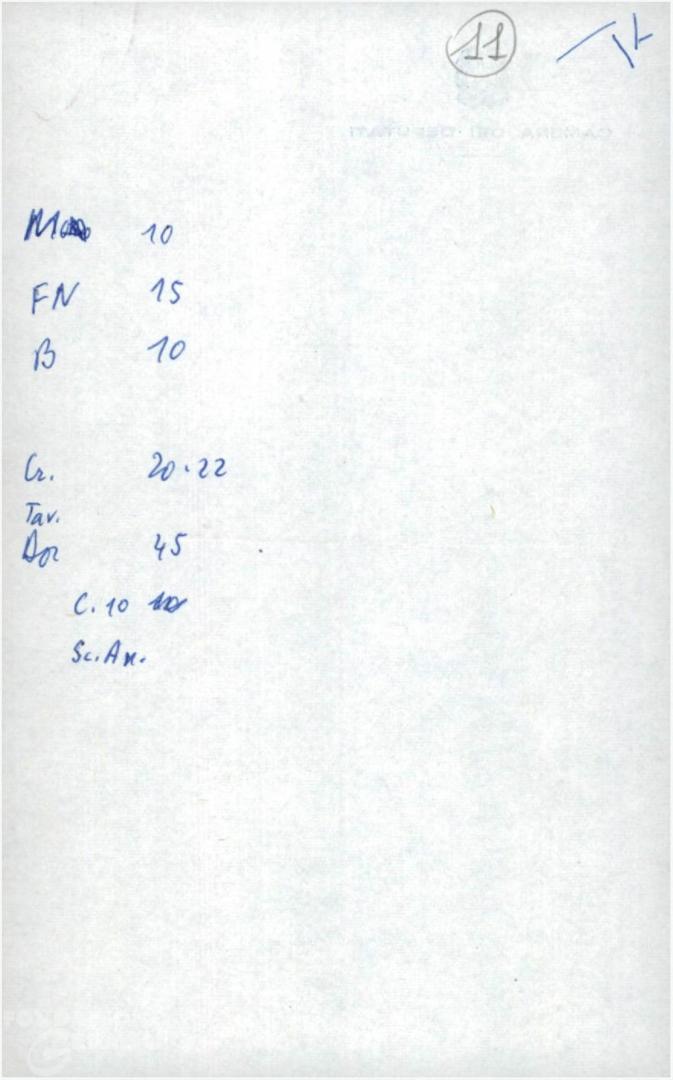 11
CAMERA DEI DEPUTATI
M 10
FN 15
B 10
Cr. 20.22
Tav.
Dor 45
C. 10
Sc. An.